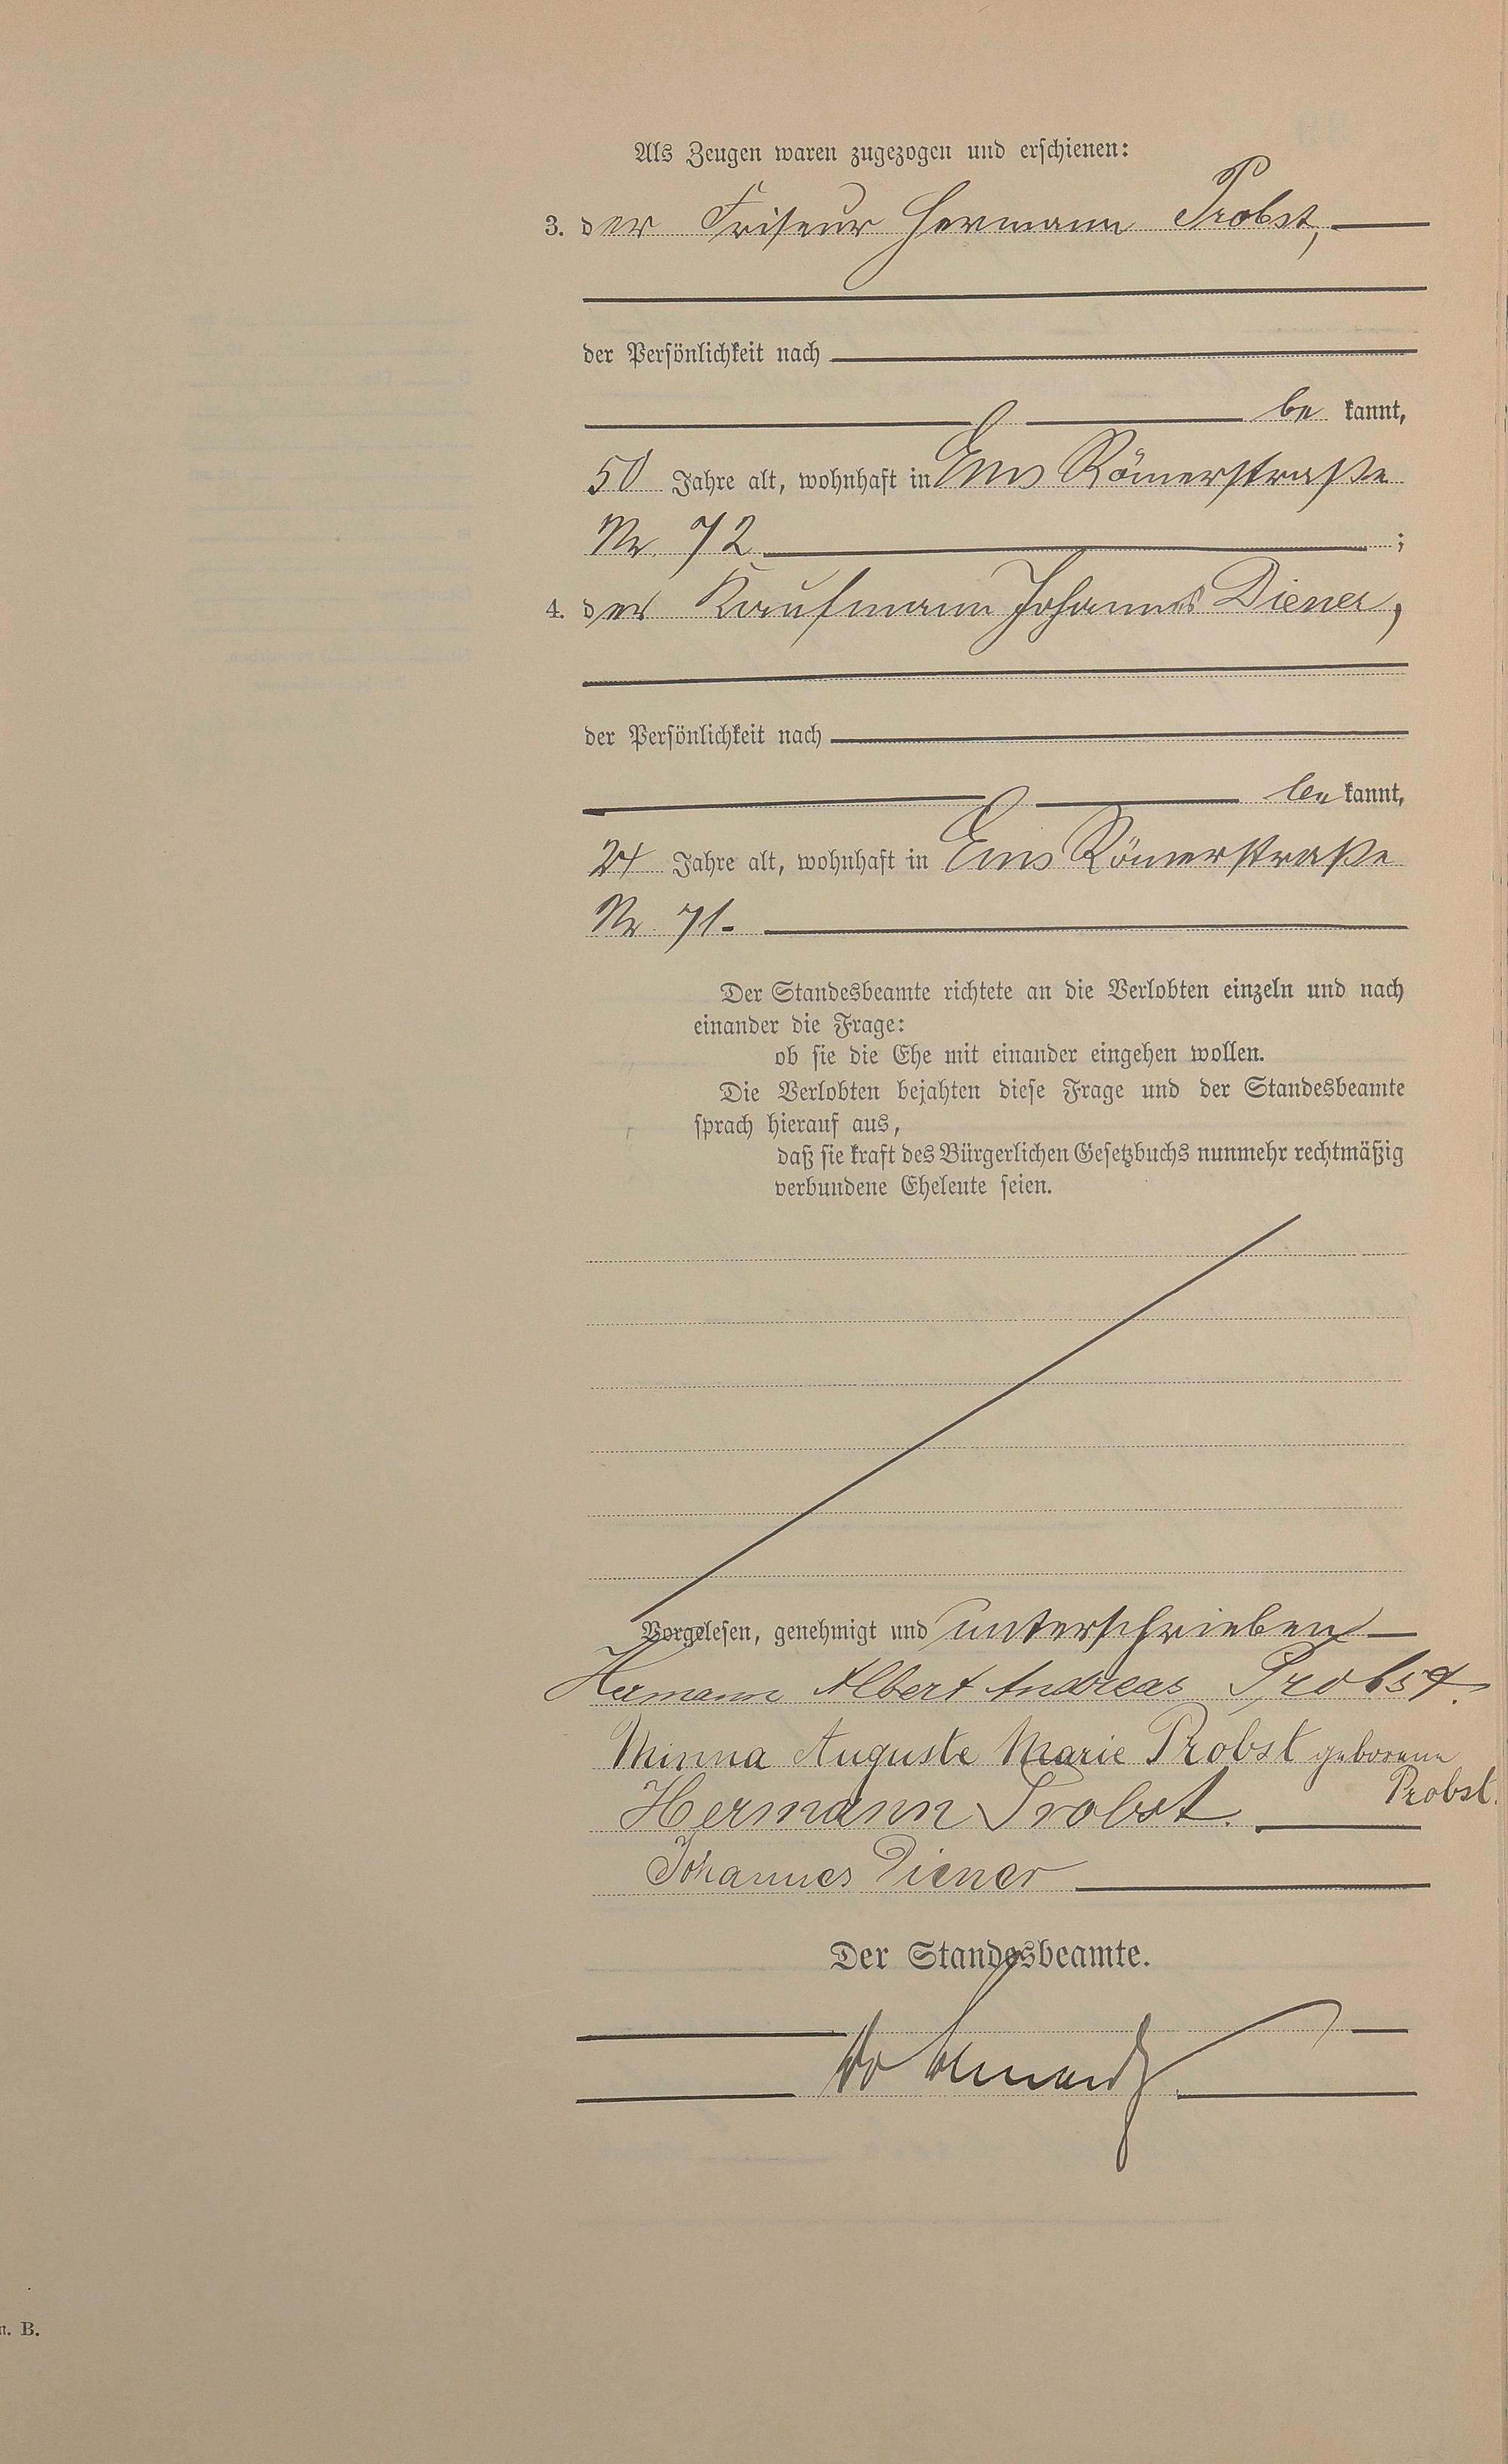 Als Zeugen waren zugezogen und erschienen:
3. der Friseur Hermann Probst,
der Persönlichkeit nach
be kannt,
50 Jahre alt, wohnhaft in Ems Römerstraße
Nr. 72 ;
4. der Kaufmann Johannes Diener,
der Persönlichkeit nach
be kannt,
24 Jahre alt, wohnhaft in Ems Römerstraße
Nr. 71.
Der Standesbeamte richtete an die Verlobten einzeln und nach
einander die Frage:
ob sie die Ehe mit einander eingehen wollen.
Die Verlobten bejahten diese Frage und der Standesbeamte
sprach hierauf aus,
daß sie kraft des Bürgerlichen Gesetzbuchs nunmehr rechtmäßig
verbundene Eheleute seien.
Vorgelesen, genehmigt und unterschrieben
Hermann Albert Andreas Probst.
Minna Auguste Marie Probst geborene
Probst.
Hermann Probst.
Johannes Diener
Der Standesbeamte.
B.